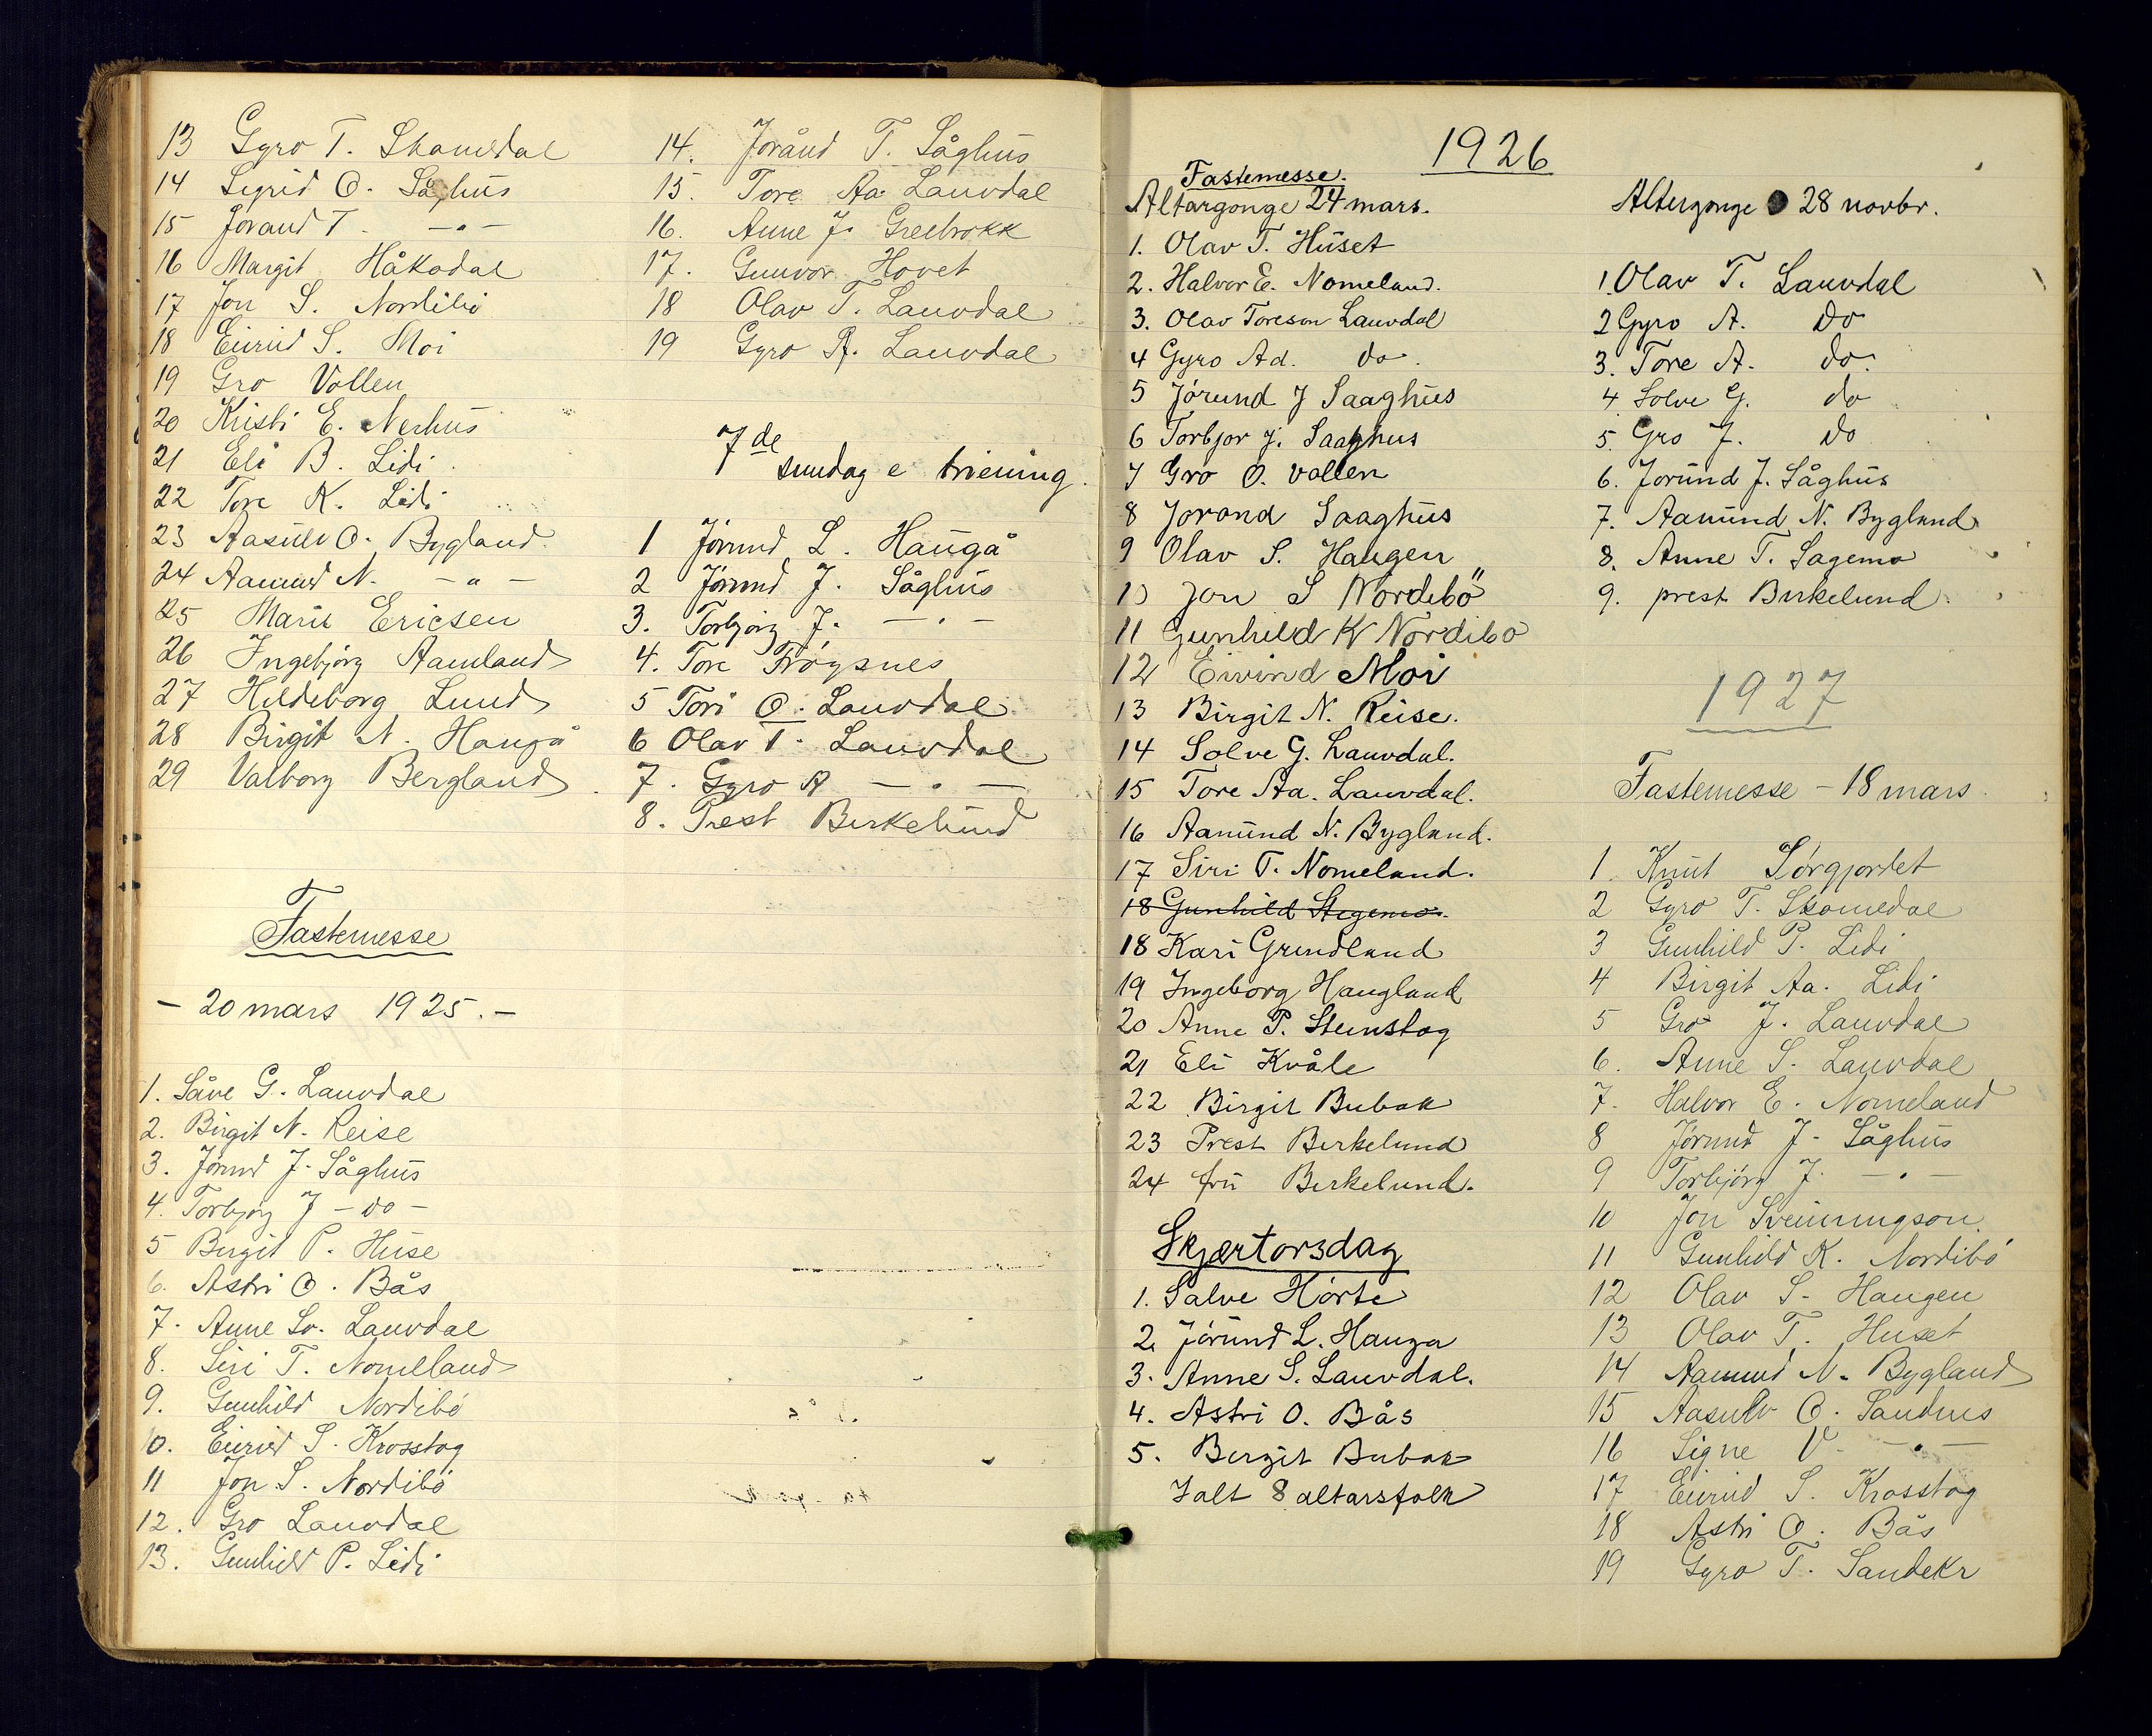 13 Gyro T. Skomedal
14 Sigrid O. Såghus
15 Jorand T. -"-
16 Margit Håkodal
17 Jon S. Nordibö
18 Eivind S. Moi
19 Gro Vollen
20 Kristi E. Nerhus
21 Eli B. Lidi
22 Tore K. Lidi
23 Aasulv O. Bygland
24 Aamund N. -"-
25 Marie Ericsen
26 Ingebjörg Aamland
27 Hildeborg Lund
28 Birgit N. Haugå
29 Valborg Bergland
Fastemesse
- 20 mars 1925. -
1. Salve G. Lauvdal
2. Birgit N. Reise
3. Jórund J. Såghus
4. Torbjorg J - do -
5 Birgit P. Huse
6. Astri O. Bås
7. Anne Sv. Lauvdal
8. Siri T. Nomeland
9. Gunhild Nordibó
10. Eivind S. Krosstog
11 Jon S. Nordibó
12. Gro Lauvdal
13. Gunhild P. Lidi
14. Joránd T. Såghus
15. Tore Aa. Lauvdal
16. Anne J.
17. Gunvor Hovet
18 Olav T. Lauvdal
19 Gyro A. Lauvdal
7de
sundag e triening.
1 Jórund L. Haugå
2 Jórund J. Såghus
3. Torbjorg J. -"-
4. Tore Fróysnes
5 Tori O. Lauvdal
6 Olav T. Lauvdal
7. Gyro A -"-
8. Prest Birkelund
1926
Fastemesse.
Altargonge 24 mars.
1. Olav T. Huset
2. Halvor E. Nomeland.
3. Olav Toreson Lauvdal
4 Gyro Ad. do.
5 Jórund J Saaghus
6 Torbjor J. Saaghus
7 Gro O. Vollen
8 Jorand Saaghus
9 Olav S. Haugen
10 Jon S Nordibö
11 Gunhild K Nordibö
12 Eivind Moi
13 Birgit N. Reise.
14 Solve G. Lauvdal.
15 Tore Aa. Lauvdal.
16 Aamund N. Bygland.
17 Siri T. Nomeland.
18 Gunhild Stegemo.
18 Kari Grundland
19 Ingeborg Haugland
20 Anne P. Steinstog
21 Eli Kvåle
22 Birgit Bubak
23 Prest Birkelund
24 fru Birkelund.
Skjærtorsdag
1. Salve Hórte
2. Jórund L. Hauga
3. Anne S. Lauvdal.
4. Astri O. Bås
5. Birgit Bubak
Ialt 8 altarsfolk
Altergonge 28 novbr.
1. Olav T. Lauvdal
2 Gyro A. do
3. Tore A. do.
4 Solve G. do
5. Gro J. do
6. Jorund J. Såghus
7. Aamund N. Bygland
8. Anne T. Sagemo
9. prest Birkelund.
1927
Fastemesse - 18 mars.
1. Knut Lórgjordet
2 Gyro T. Skomedal
3 Gunhild P. Lidi
4 Birgit Aa. Lidi
5 Gro J. Lauvdal
6. Anne S. Lauvdal
7. Halvor E. Nomeland
8 Jórund J. Såghus
9 Torbjórg J. -"-
10 Jon Sveinungson
11 Gunhild K. Nordibó
12 Olav S. Haugen
13 Olav T. Huset
14 Aamund N. Bygland
15 Aasulv O. Sandnes
16 Signe V. -"-
17 Eivind S. Krosstog
18 Astri O. Bås
19 Gyro T. Sandekr